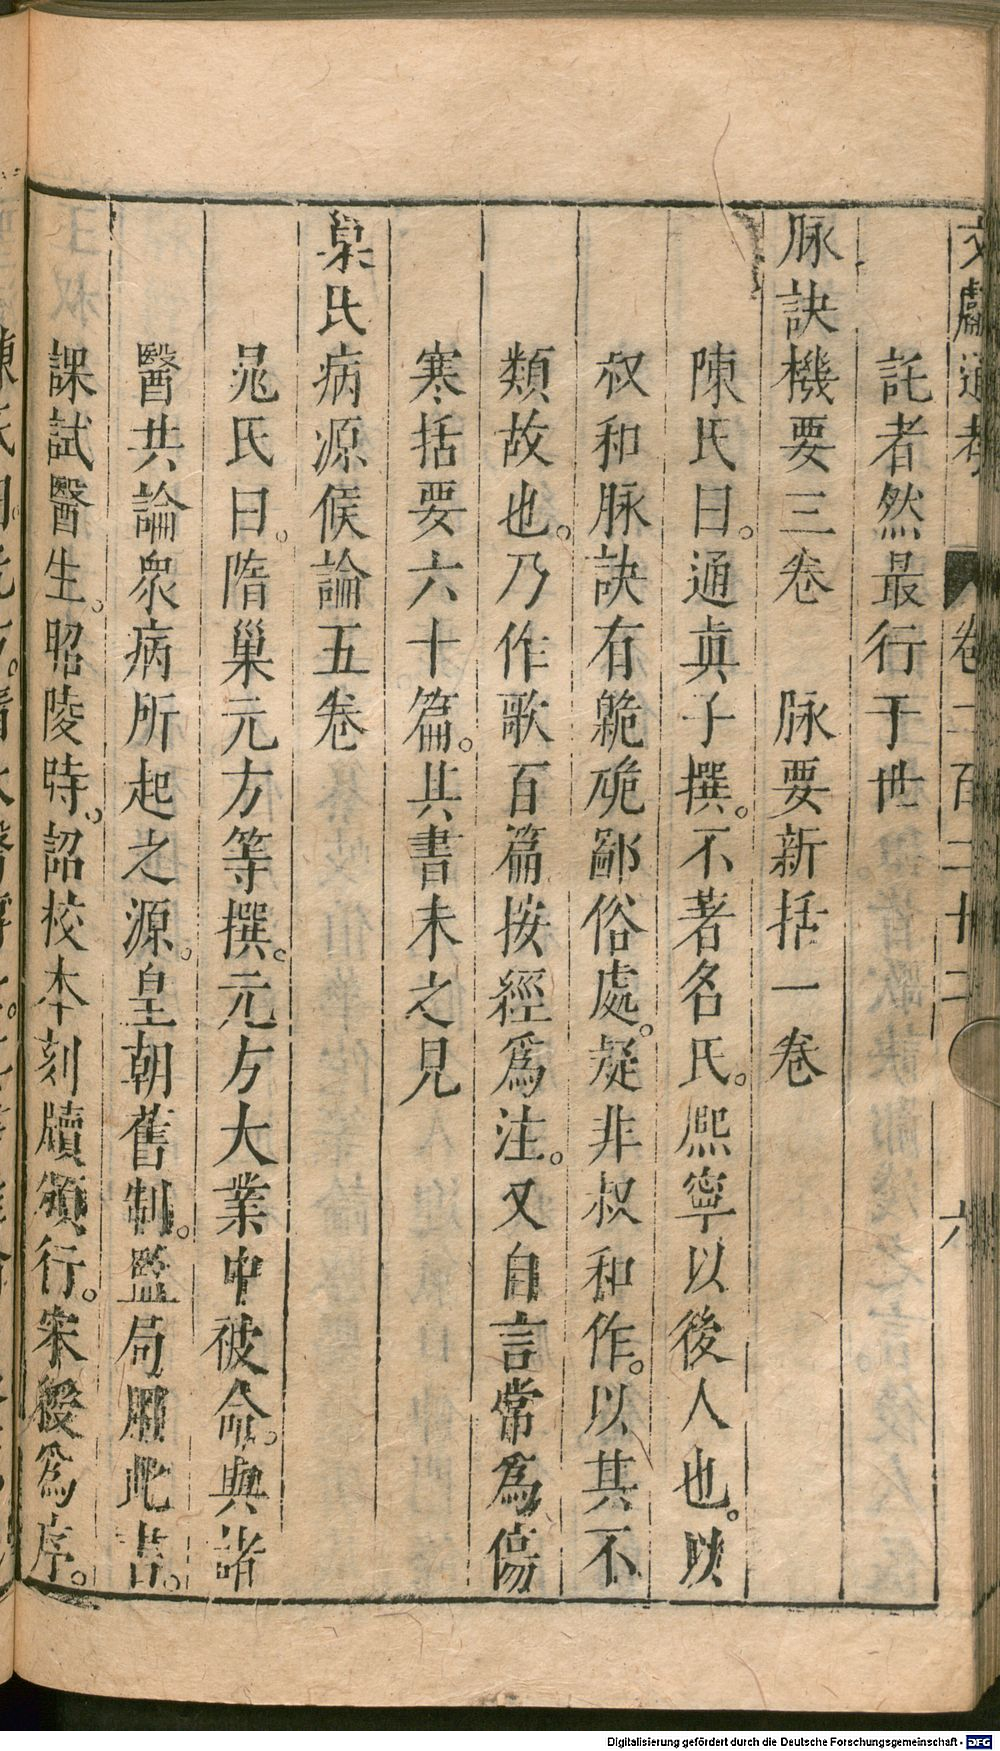 文獻通考　卷二百二十二　六
託者然最行于世
脉訣機要三卷　脉要新括一卷
陳氏曰。通眞子撰。不著名氏。熈寧以後人也。以
叔和脉訣有䠆硊鄙俗處。疑非叔和作。以其不
類故也。乃作歌百篇按經爲注。又自言常爲傷
寒括要六十篇。其書未之見
巢氏病源候論五卷
晁氏曰。隋巢元方等撰。元方大業中被命。與諸
醫共論衆病所起之源。皇朝舊制。監局用此書。
課試醫生。昭陵時。詔校本刻牘頒行。宋綬爲序。
Digitalisierung gefördert durch die Deutsche Forschungsgemeinschaft - DFG